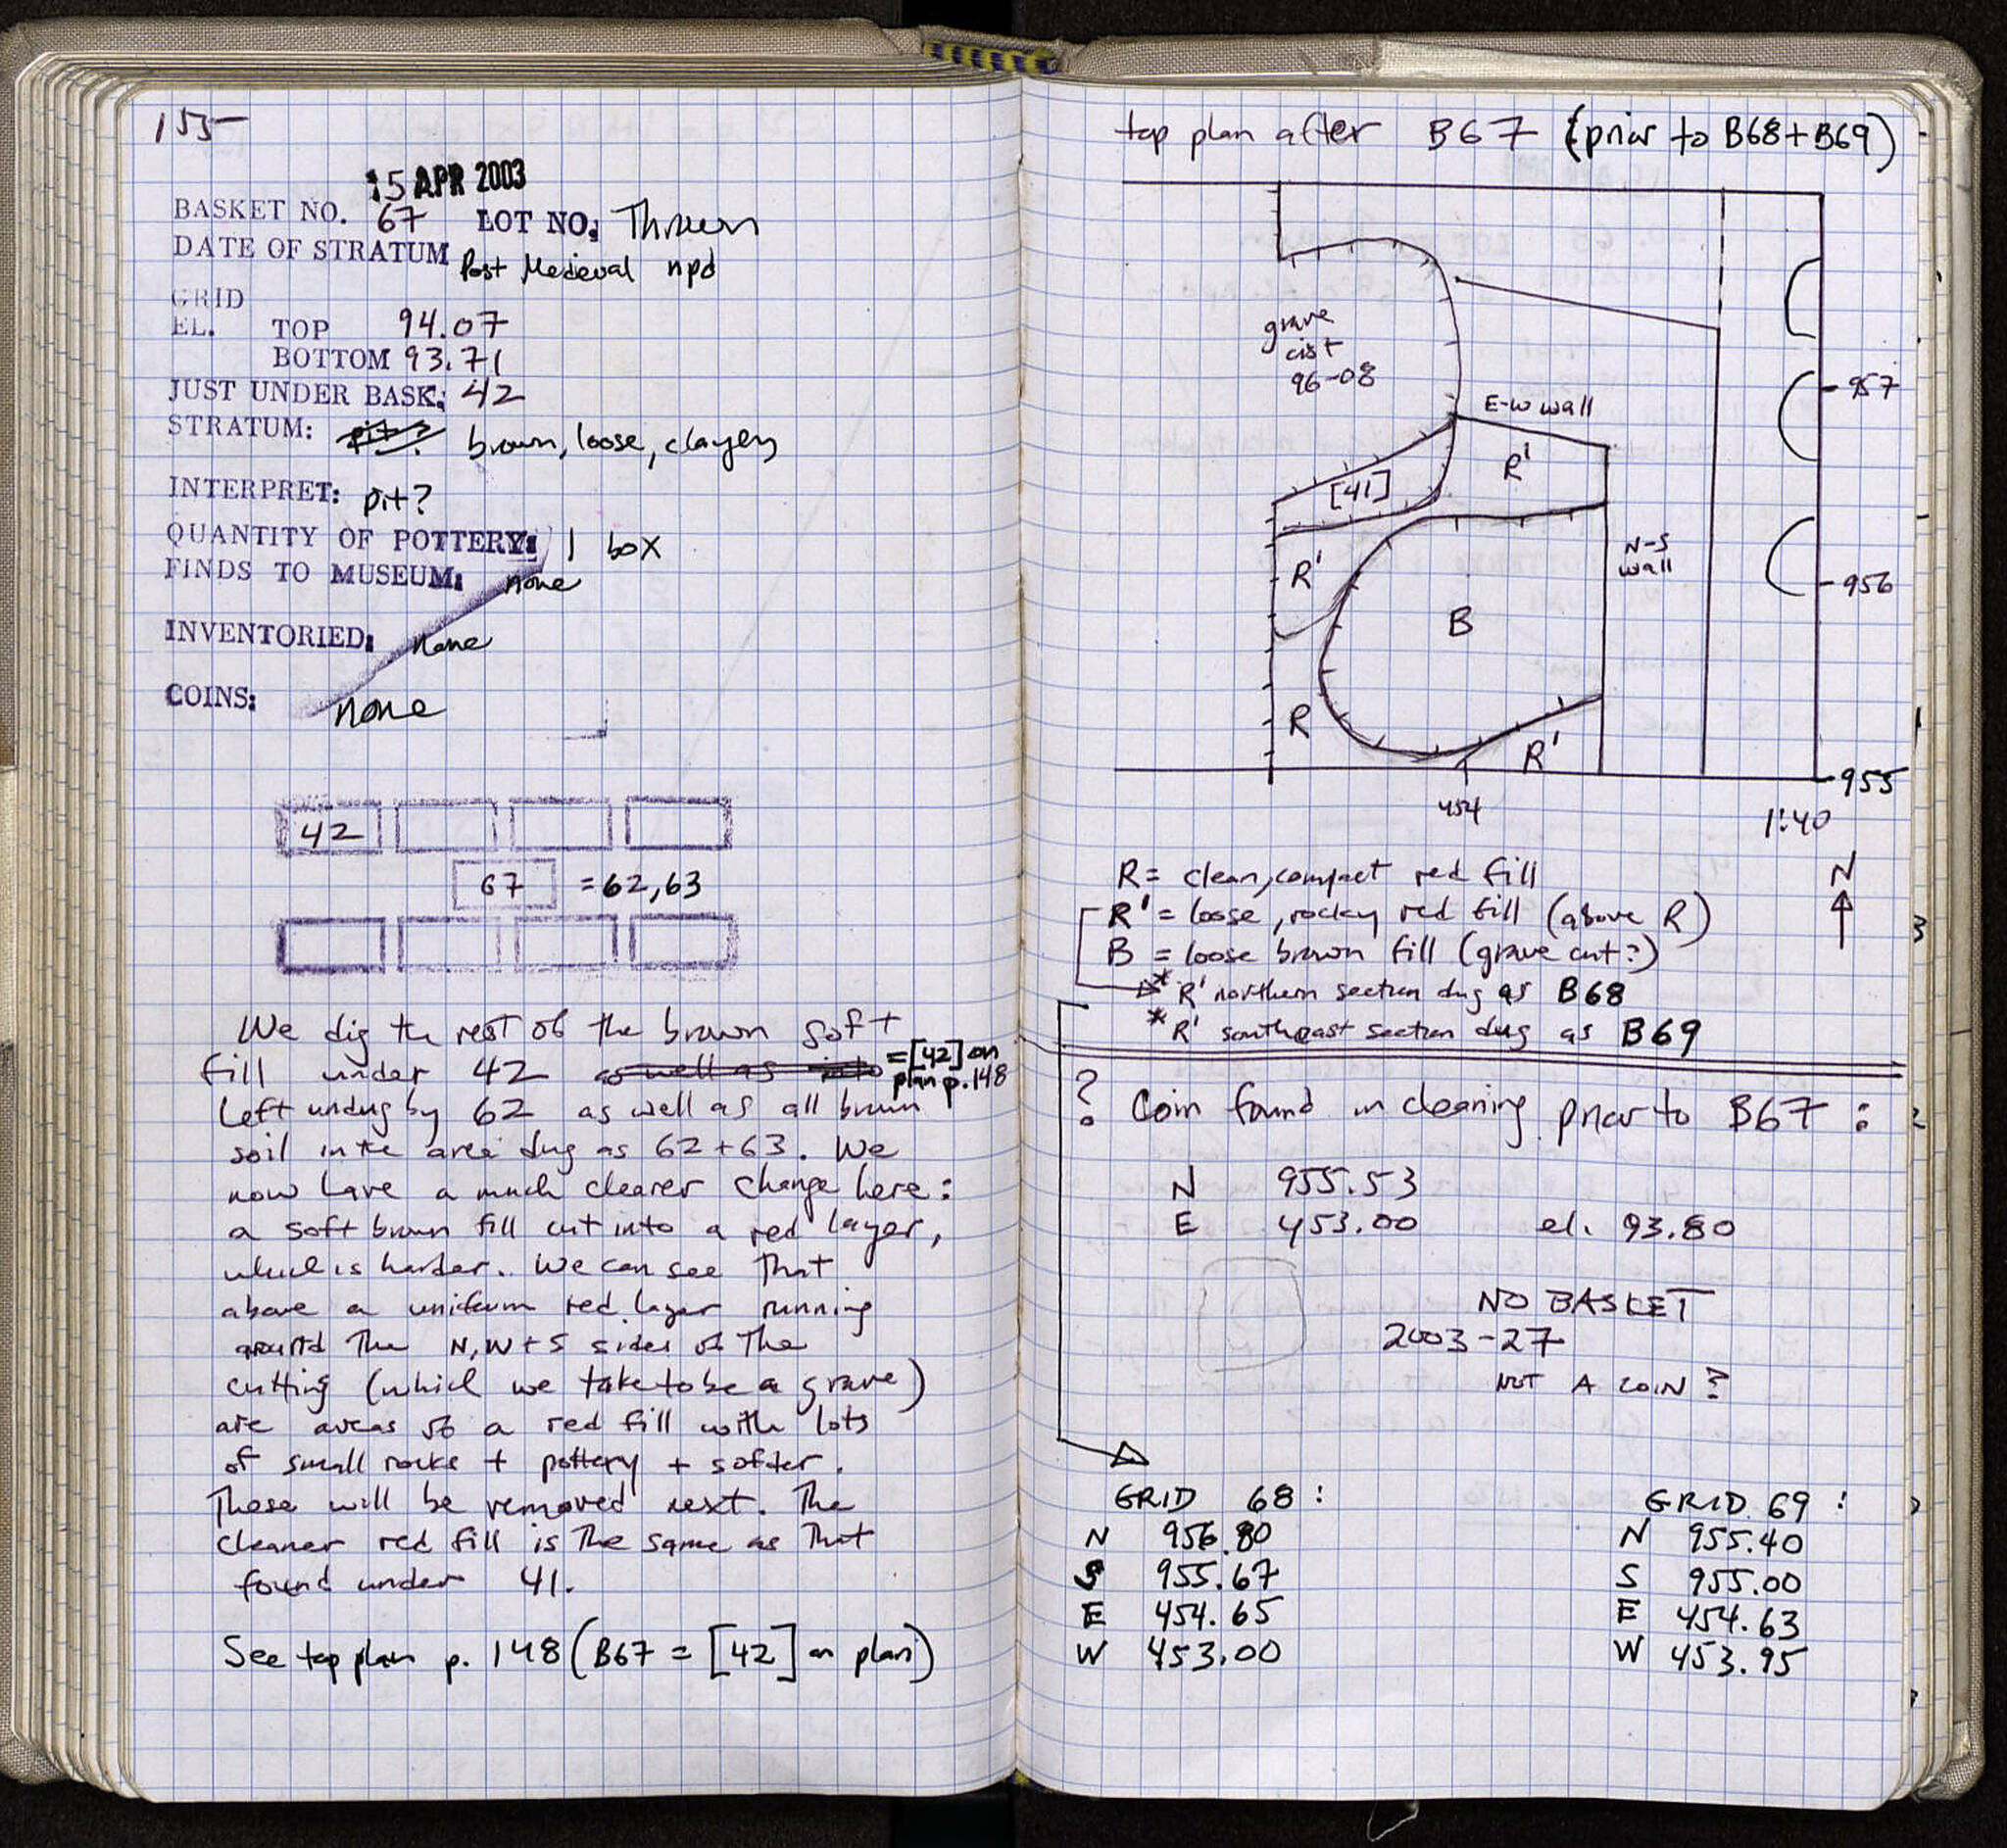 155
15 APR 2003
BASKET NO. 67 LOT NO: Thrown
DATE OF STRATUM Post Medieval npd
GRID
EL. TOP 94.07
BOTTOM 93.71
JUST UNDER BASK: 42
STRATUM: pit? brown, loose, clayey
INTERPRET: pit?
QUANTITY OF POTTERY: 1 box
FINDS TO MUSEUM: none
INVENTORIED: none
COINS: none
42
67 = 62,63
We dig the rest of the brown soft
fill under 42 as well as into =[42] on plan p.148
left undug by 62 as well as all brown
soil in the area dug as 62+63. We
now have a much clearer change here:
a soft brown fill cut into a red layer,
which is harder. We can see that
above a uniform red layer running
around the N, W + S sides of the
cutting (which we take to be a grave)
are areas of a red fill with lots
of small rocks + pottery + softer.
These will be removed next. The
cleaner red fill is the same as that
found under 41.
See top plan p. 148 (B67 = [42] on plan)
top plan after B67 (prior to B68+B69)
grave
cist
96-08
957
E-W wall
R'
[41]
N-S
wall
R'
956
B
R
R'
955
454
1:40
R = clean, compact red fill
N
R' = loose, rocky red fill (above R)
B = loose brown fill (grave cut?)
* R' northern section dug as B68
* R' southeast section dug as B69
? Coin found in cleaning prior to B67:
N 955.53
E 453.00 el. 93.80
NO BASKET
2003-27
NOT A COIN?
GRID 68: GRID 69:
N 956.80 N 955.40
S 955.67 S 955.00
E 454.65 E 454.63
W 453.00 W 453.95